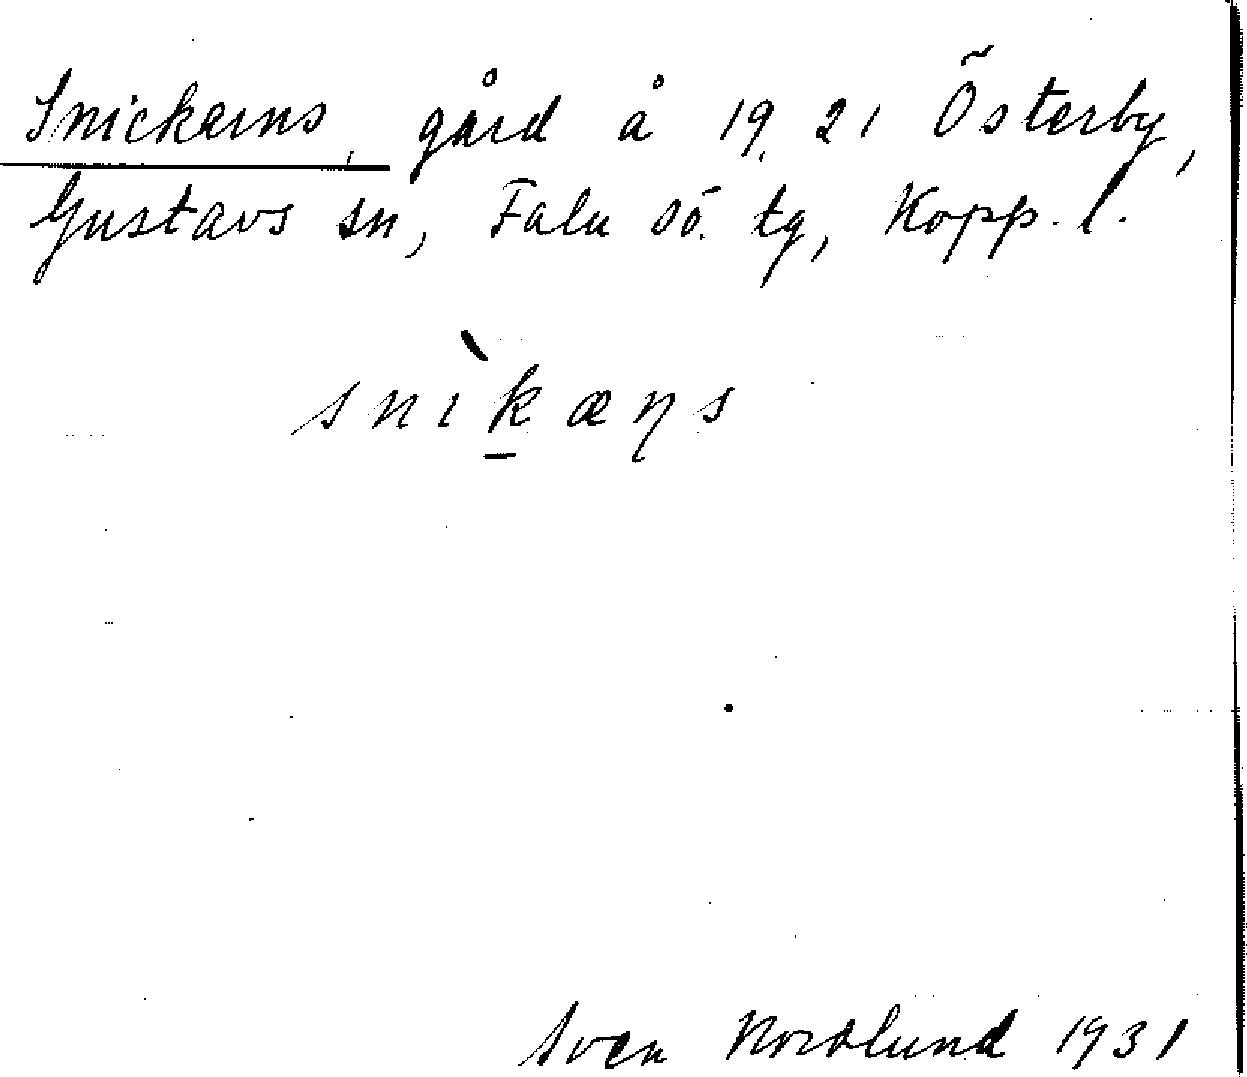 Snickarns, gård å 19, 21 Österby,
Gustavs sn, Falu sö. tg, Kopp. l.
snìkæɳs
Sven Nordlund 1931